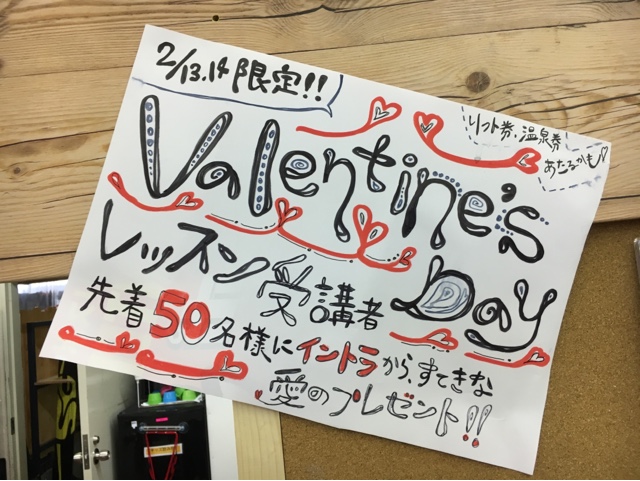 2/13.14限定!!
リフト券、温泉券
あたるかも♡
Valentine's
Day
レッスン受講者
先着50名様にイントラから、すてきな
愛のプレゼント!!